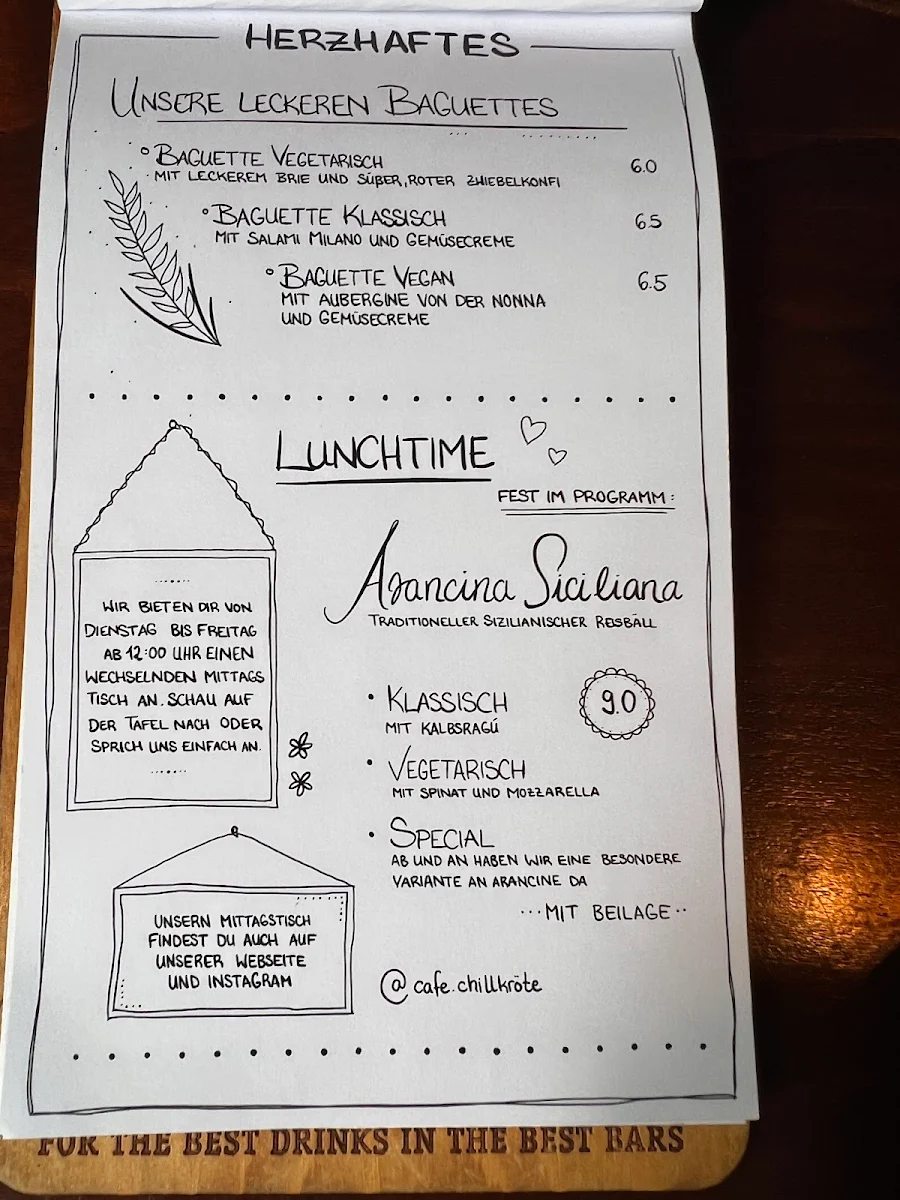 HERZHAFTES
UNSERE LECKEREN BAGUETTES
BAGUETTE VEGETARISCH 6.0
MIT LECKEREM BRIE UND SÜßER, ROTER ZWIEBELKONFI
BAGUETTE KLASSISCH 6.5
MIT SALAMI MILANO UND GEMÜSECREME
BAGUETTE VEGAN 6.5
MIT AUBERGINE VON DER NONNA
UND GEMÜSECREME
LUNCHTIME
FEST IM PROGRAMM:
Arancina Siciliana
TRADITIONELLER SIZILIANISCHER REISBÄLL
WIR BIETEN DIR VON
DIENSTAG BIS FREITAG
AB 12:00 UHR EINEN
WECHSELNDEN MITTAGS
TISCH AN. SCHAU AUF
DER TAFEL NACH ODER
SPRICH UNS EINFACH AN.
• KLASSISCH 9.0
MIT KALBSRAGÚ
• VEGETARISCH
MIT SPINAT UND MOZZARELLA
• SPECIAL
AB UND AN HABEN WIR EINE BESONDERE
VARIANTE AN ARANCINE DA
...MIT BEILAGE..
UNSERN MITTAGSTISCH
FINDEST DU AUCH AUF
UNSERER WEBSEITE
UND INSTAGRAM
@ cafe.chillkröte
FOR THE BEST DRINKS IN THE BEST BARS